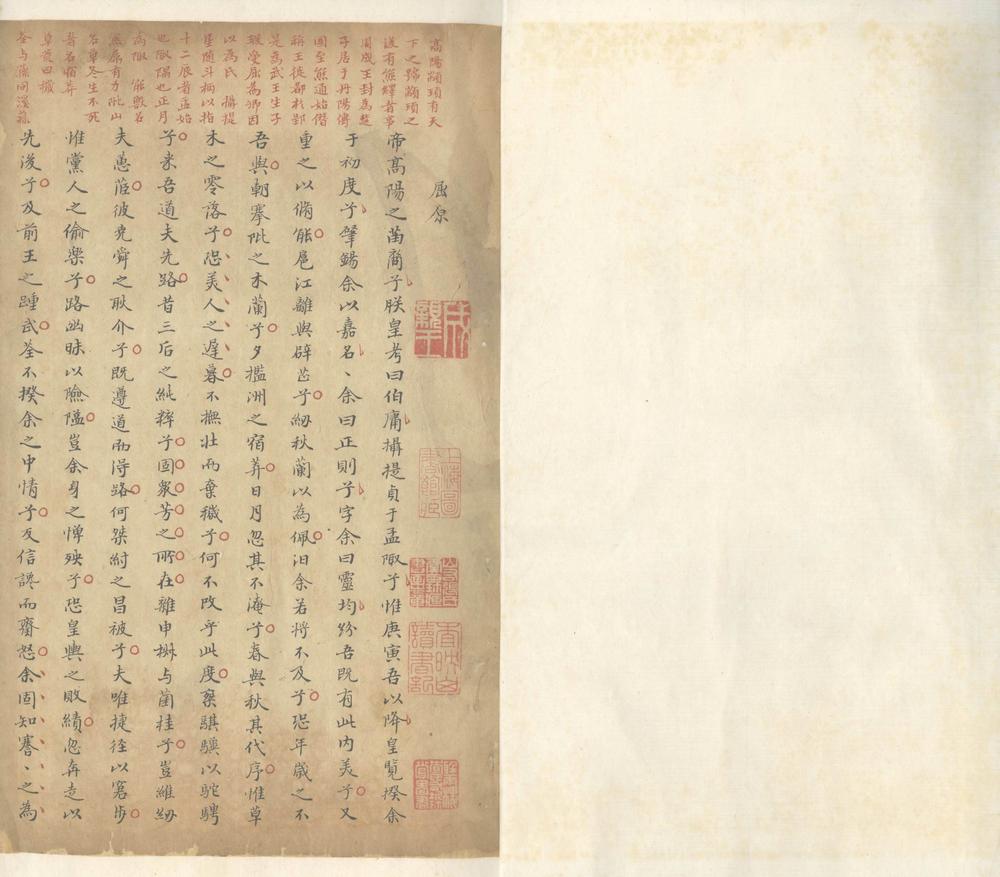 高陽顓頊有天
下之號顓頊之
後有熊繹者事
周成王封爲楚
子居于丹陽傳
國至熊通始僭
稱王徙都於郢
是爲武王生子
瑕受屈爲卿因
以爲氏 攝提
星隨斗柄以指
十二辰者孟始
也陬隅也正月
爲陬 能獸名
熊屬有力阰山
名草冬生不死
者名宿莽
草曰
荃与蓀同溪蓀
屈原
帝高陽之苗裔兮朕皇考曰伯庸攝提貞于孟陬兮惟庚寅吾以降皇覽揆余
于初度兮肇錫余以嘉名、余曰正則兮字余曰靈均紛吾既有此内美兮又
重之以脩能扈江離與辟芷兮紉秋蘭以爲佩汨余若將不及兮恐年歲之不
吾與朝搴阰之木蘭兮夕攬洲之宿莽日月忽其不淹兮春與秋其代序惟草
木之零落兮恐美人之遲暮不撫壯而棄穢兮何不改乎此度椉騏驥以駝騁
兮来吾道夫先路昔三后之純粹兮固衆芳之所在雜申椒与菌桂兮豈維紉
夫蕙茝彼堯舜之耿介兮既遵道而得路何桀紂之昌被兮夫唯捷徑以窘步
惟黨人之偷樂兮路幽昧以險隘豈余身之憚殃兮恐皇輿之敗績忽奔走以
先後兮及前王之踵武荃不揆余之中情兮反信讒而齌怒余固知謇、之爲
成親王
上海圖書館藏